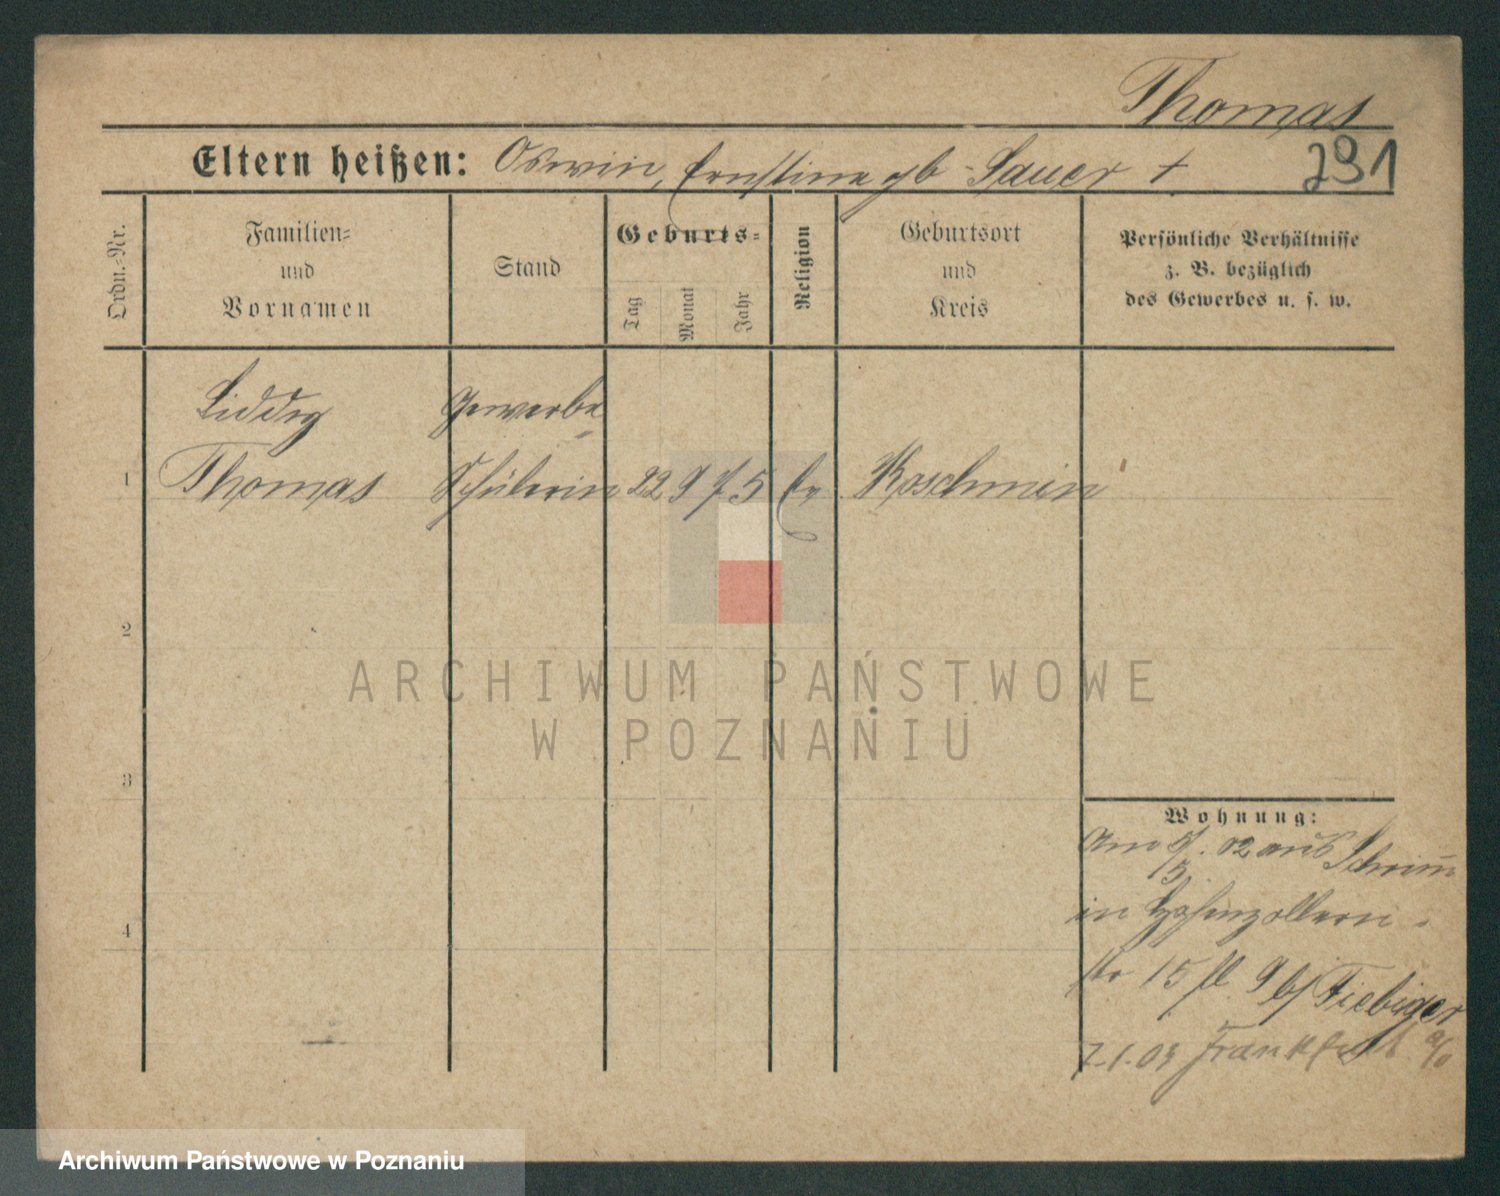 Thomas
Eltern heißen: Oswin, Ernstine gb Sauer +
291
Ordn.=Nr.
Familien=
und
Vornamen
Stand
Geburts=
Tag
Monat
Jahr
Religion
Geburtsort
und
Kreis
Persönliche Verhältnisse
z. B. bezüglich
des Gewerbes u. s. w.
Gewerbe
1 Thomas Schülerin 22 9 75 Ev Koschmin
2
3
4
Wohnung:
Am 02 aus Schrimm
15.
in Hohenzollern
str 15 fl 9 b/ Fiebiger
7.1.03 Frankfurt a/o
ARCHIWUM PAŃSTWOWE
W POZNANIU
Archiwum Państwowe w Poznaniu